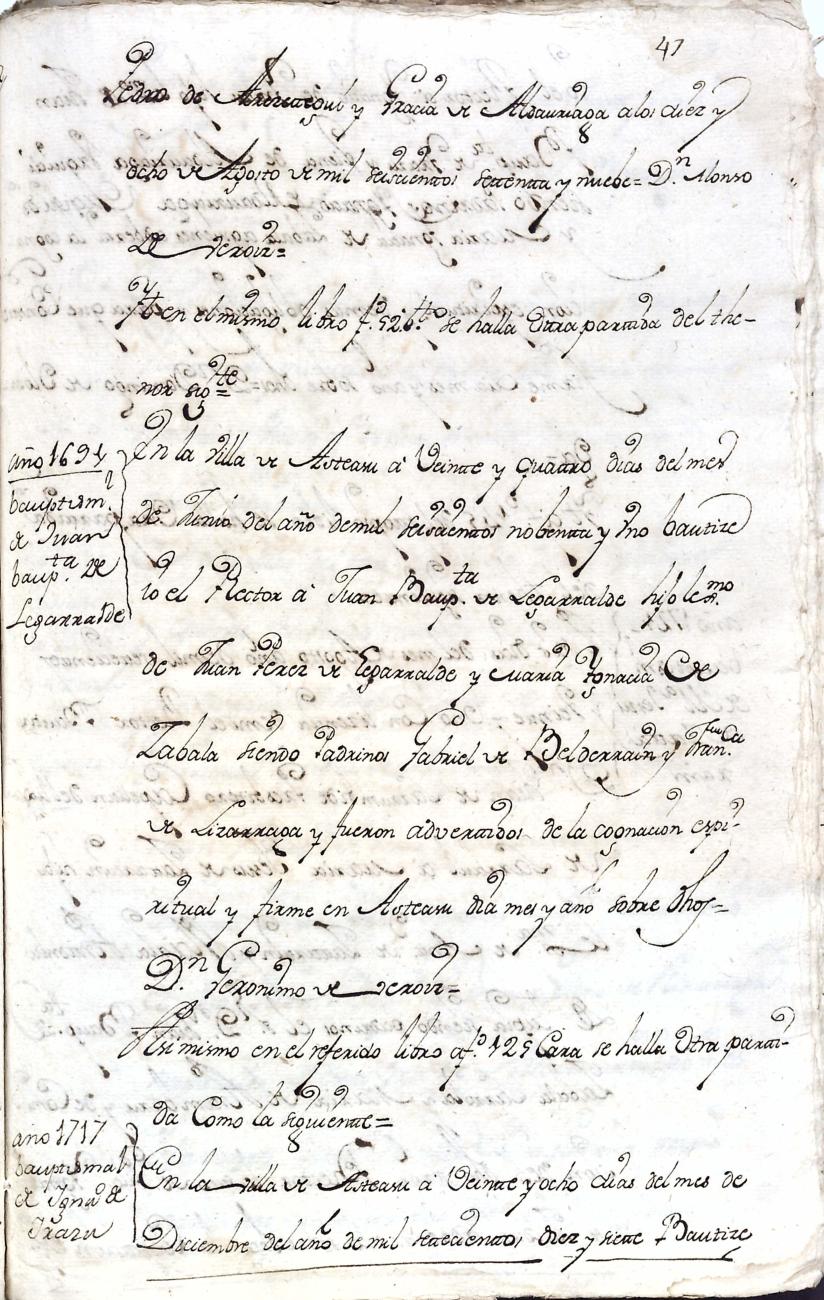 47
Pedro de Arereçegui y Gracia de Aldauriaga a los diez y
ocho de Agosto de mil seiscientos settenta y nuebe = D.n Alonso
de =
Yt en el mismo libro f.º 52 b.to se halla Otra partida del the-
nor sig.te =
año 1691
bauptism.l
de Juan
baup.ta de
Legarralde
En la villa de Asteasu a Veinte y quatro dias del mes
de Junio del año de mil seiscientos nobenta y Vno bautize
io el Rector a Juan Baup.ta de Legarralde hijo lexmo
de Juan Perez de Legarralde y Maria Ygnacia de
Zabala siendo Padrinos Gabriel de Belderrain y Fran.ca
de Lizarraga y fueron advertidos de la cognacion espi-
ritual y firme en Asteasu dia mes y año sobre dhos =
D.n Geronimo de =
Asi mismo en el referido libro a f.º 125 Cara se halla Otra parti-
da Como la siguiente =
año 1717
bauptismal
de Ign.o de
Yrazu
En la villa de Asteasu a Veinte y ocho dias del mes de
Diciembre del año de mil settecientos diez y siette Bautize